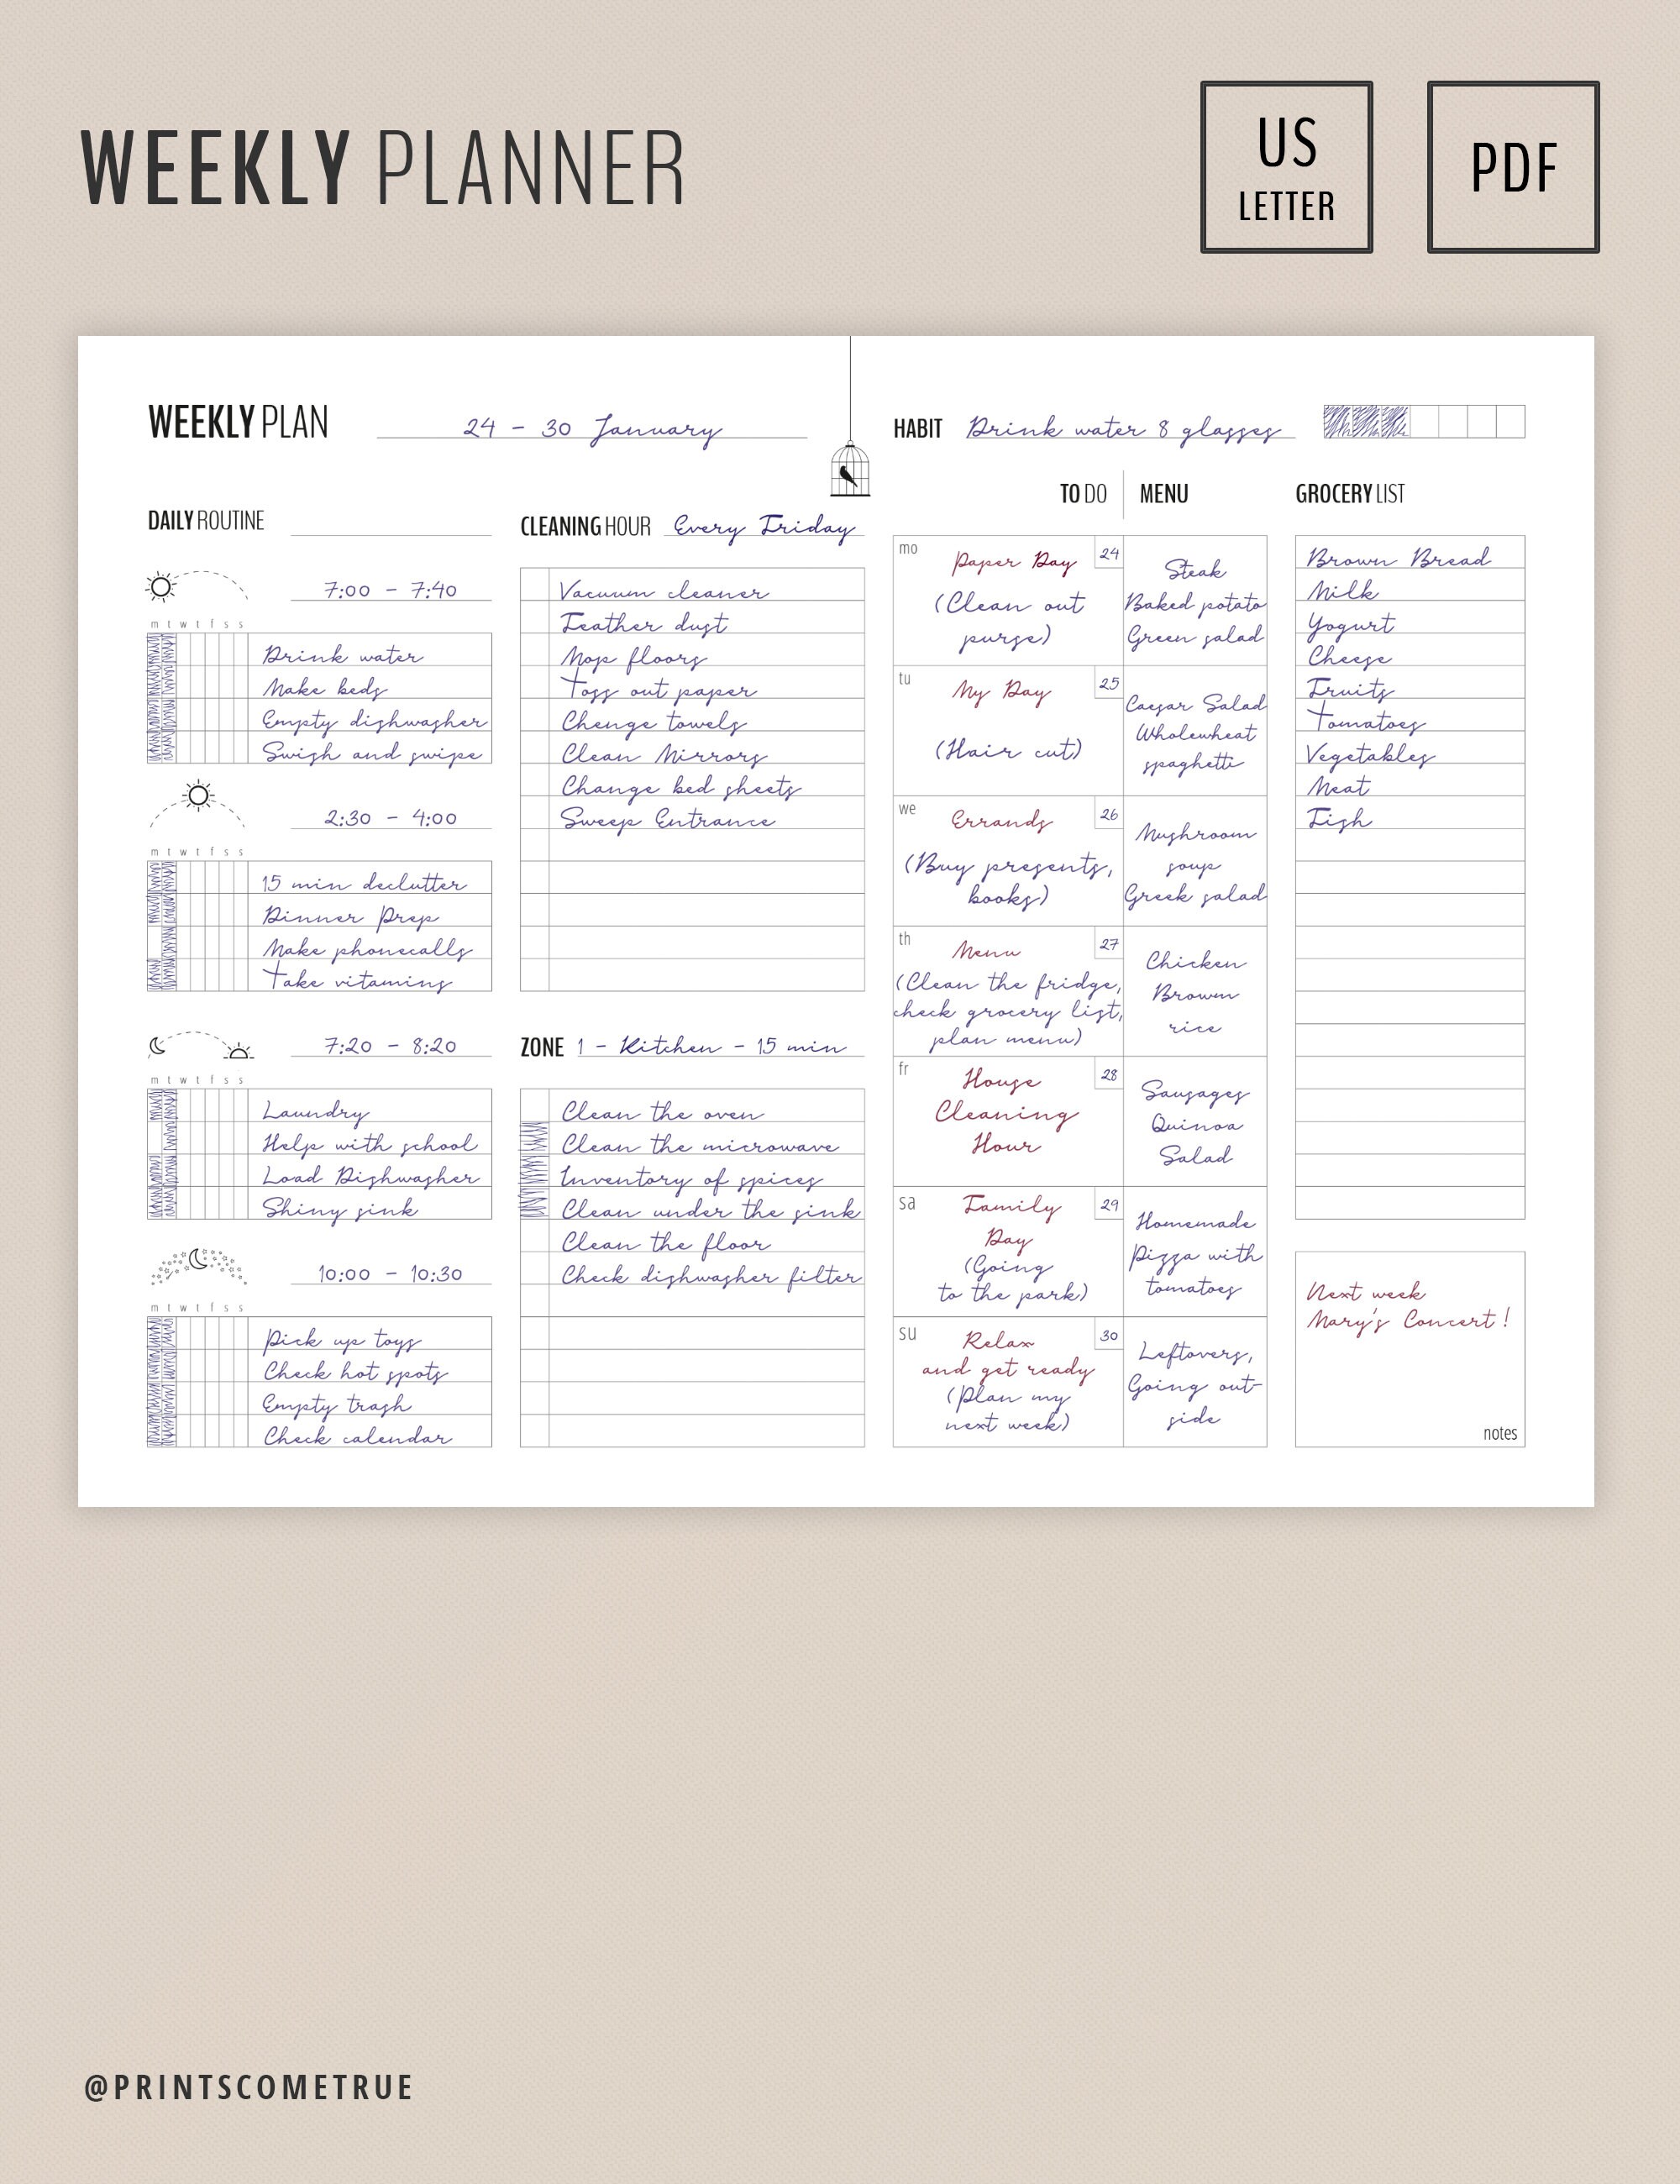 WEEKLY PLANNER
US
LETTER
PDF
WEEKLY PLAN 24 - 30 January
DAILY ROUTINE
7:00 - 7:40
m t w t f s s
Drink water
Make beds
Empty dishwasher
Swish and swipe
2:30 - 4:00
m t w t f s s
15 min declutter
Dinner Prep
Make phonecalls
Take vitamins
7:20 - 8:20
m t w t f s s
Laundry
Help with school
Load Dishwasher
Shiny sink
10:00 - 10:30
m t w t f s s
Pick up toys
Check hot spots
Empty trash
Check calendar
CLEANING HOUR Every Friday
Vacuum cleaner
Feather dust
Mop floors
Toss out paper
Chenge towels
Clean Mirrors
Change bed sheets
Sweep Entrance
ZONE 1 - Kitchen - 15 min
Clean the oven
Clean the microwave
Inventory of spices
Clean under the sink
Clean the floor
Check dishwasher filter
HABIT Drink water 8 glasses
TO DO
MENU
mo
24
Paper Day
(Clean out
purse)
Steak
Baked potato
Green salad
tu
25
My Day
(Hair cut)
Caesar Salad
Wholewheat
spaghetti
we
26
Errands
(Buy presents,
books)
Mushroom
soup
Greek salad
th
27
Menu
(Clean the fridge,
check grocery list,
plan menu)
Chicken
Brown
rice
fr
28
House
Cleaning
Hour
Sausages
Quinoa
Salad
sa
29
Family
Day
(Going
to the park)
Homemade
Pizza with
tomatoes
su
30
Relax
and get ready
(Plan my
next week)
Leftovers,
Going out-
side
GROCERY LIST
Brown Bread
Milk
Yogurt
Cheese
Fruits
Tomatoes
Vegetables
Meat
Fish
Next week
Mary's Concert!
notes
@PRINTSCOMETRUE